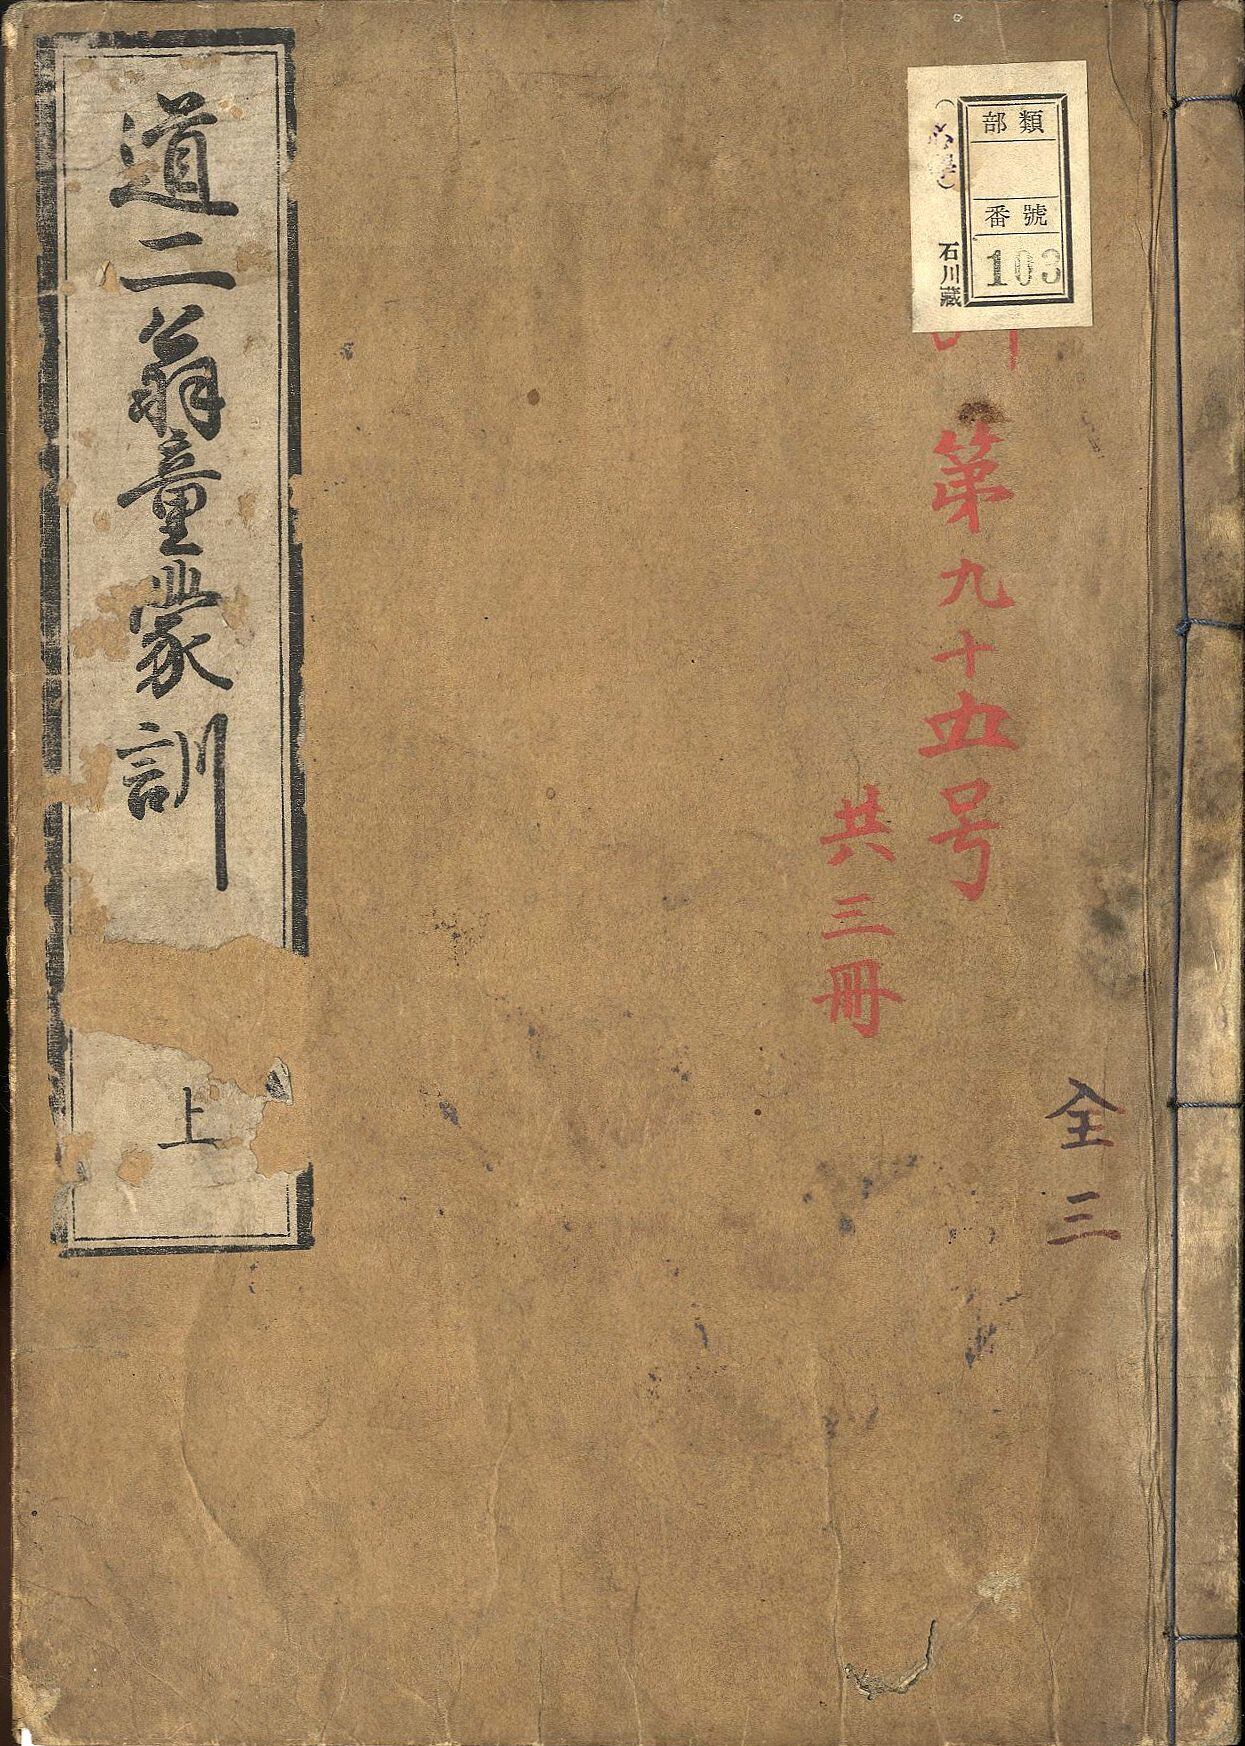 部類
番號
103
石川蔵
第九十五号
共三冊
全三
道二翁童蒙訓
上